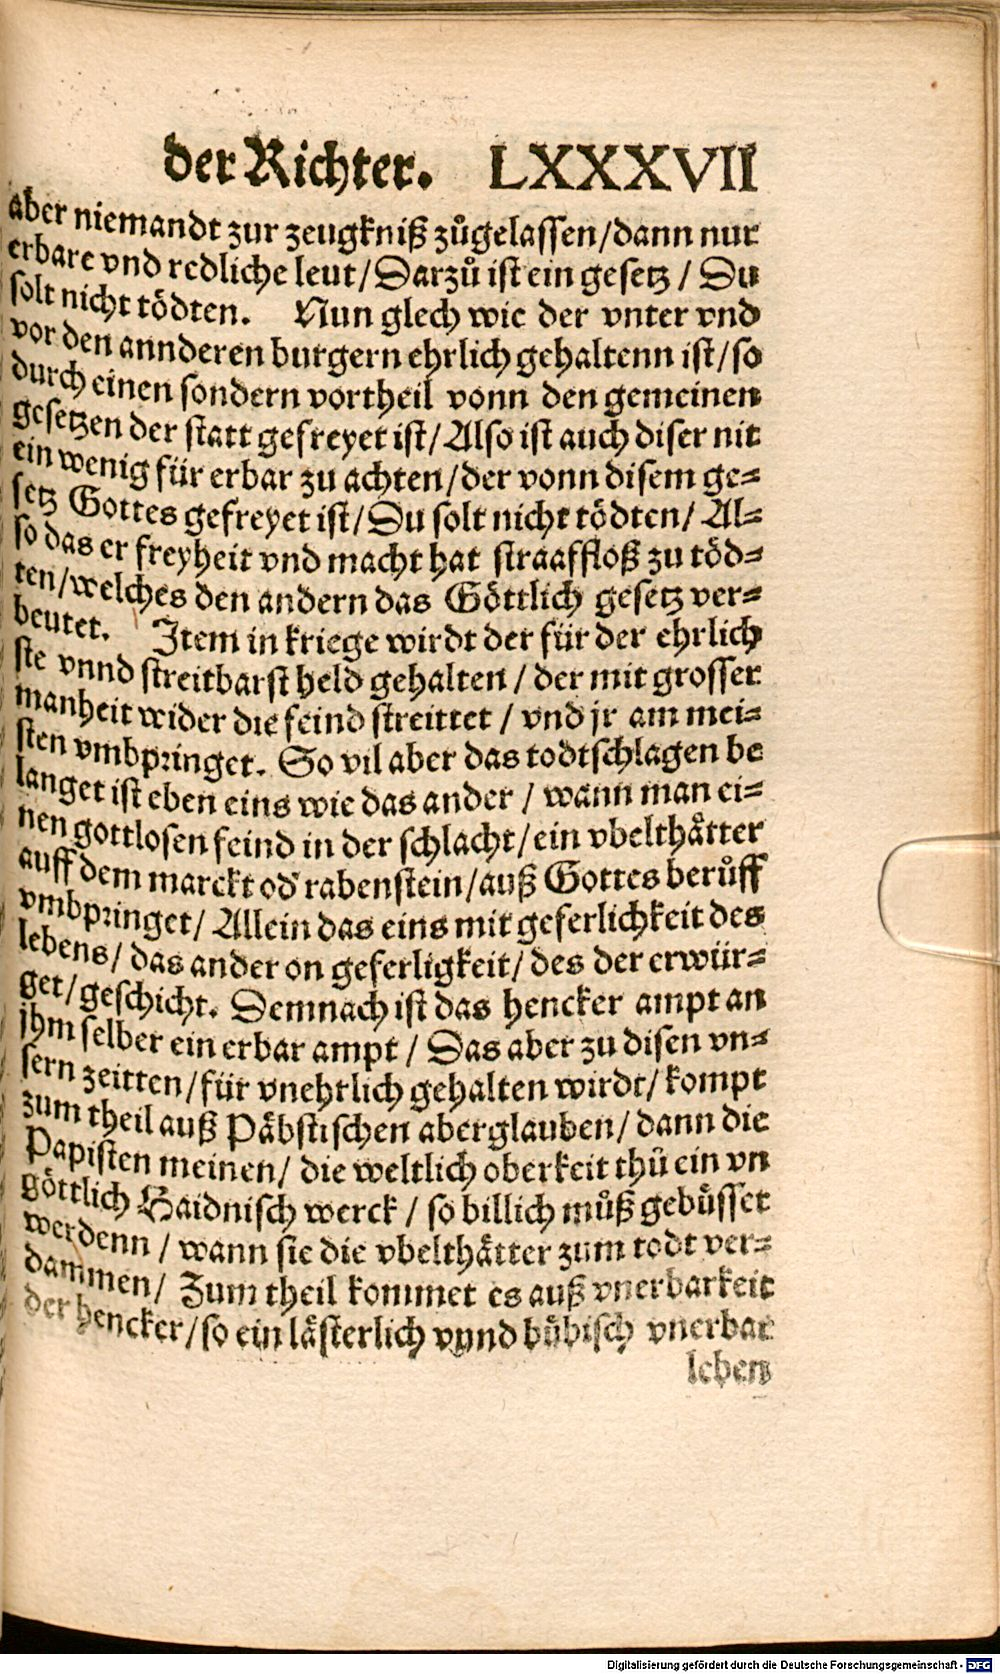 der Richter. LXXXVII
aber niemandt zur zeugkniß zůgelassen/dann nur
erbare vnd redliche leut/Darzů ist ein gesetz / Du
solt nicht tödten. Nun glech wie der vnter vnd
vor den annderen burgern ehrlich gehaltenn ist/so
durch einen sondern vortheil vonn den gemeinen
gesetzen der statt gefreyet ist/Also ist auch diser nit
ein wenig für erbar zu achten/der vonn disem ge-
setz Gottes gefreyet ist/Du solt nicht tödten/Al-
so das er freyheit vnd macht hat straaffloß zu töd-
ten/welches den andern das Göttlich gesetz ver-
beutet. Item in kriege wirdt der für der ehrlich
ste vnnd streitbarst held gehalten / der mit grosser
manheit wider die feind streittet / vnd jr am mei-
sten vmbpringet. So vil aber das todtschlagen be
langet ist eben eins wie das ander / wann man ei-
nen gottlosen feind in der schlacht/ein vbelthåtter
auff dem marckt od' rabenstein/auß Gottes berůff
vmbpringet/ Allein das eins mit geferlichkeit des
lebens/ das ander on geferligkeit/ des der erwür-
get/geschicht. Demnach ist das hencker ampt an
jhm selber ein erbar ampt / Das aber zu disen vn-
sern zeitten/für vnehrlich gehalten wirdt/kompt
zum theil auß Påbstischen aberglauben/ dann die
Papisten meinen/ die weltlich oberkeit thů ein vn
göttlich Haidnisch werck / so billich můß gebůsset
werdenn / wann sie die vbelthåtter zum todt ver-
dammen/ Zum theil kommet es auß vnerbarkeit
der hencker/so ein låsterlich vnnd bůbisch vnerbar
leben
Digitalisierung gefördert durch die Deutsche Forschungsgemeinschaft - DFG